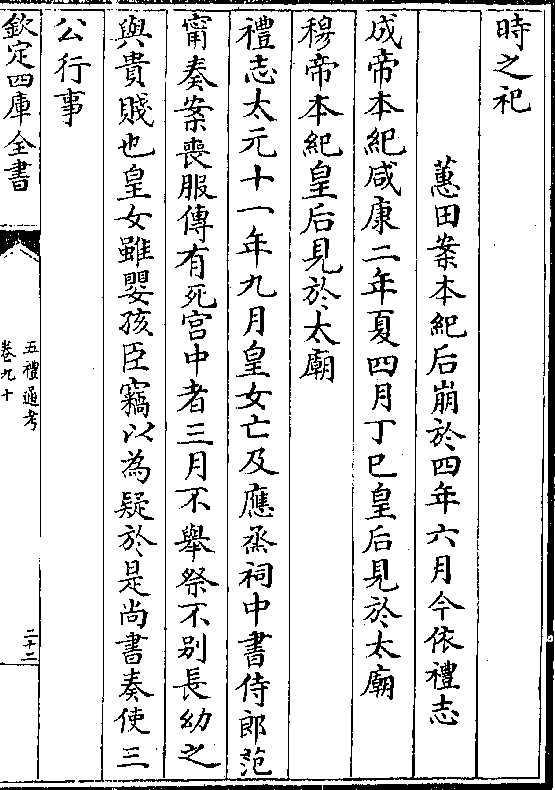 時之祀
蕙田案本紀后崩於四年六月今依禮志
成帝本紀咸康二年夏四月丁巳皇后見於太廟
穆帝本紀皇后見於太廟
禮志太元十一年九月皇女亡及應烝祠中書侍郎范
甯奏案喪服傳有死宫中者三月不舉祭不别長幼之
與貴賤也皇女雖嬰孩臣竊以為疑於是尚書奏使三
公行事
欽定四庫全書
五禮通考
卷九十
二十二